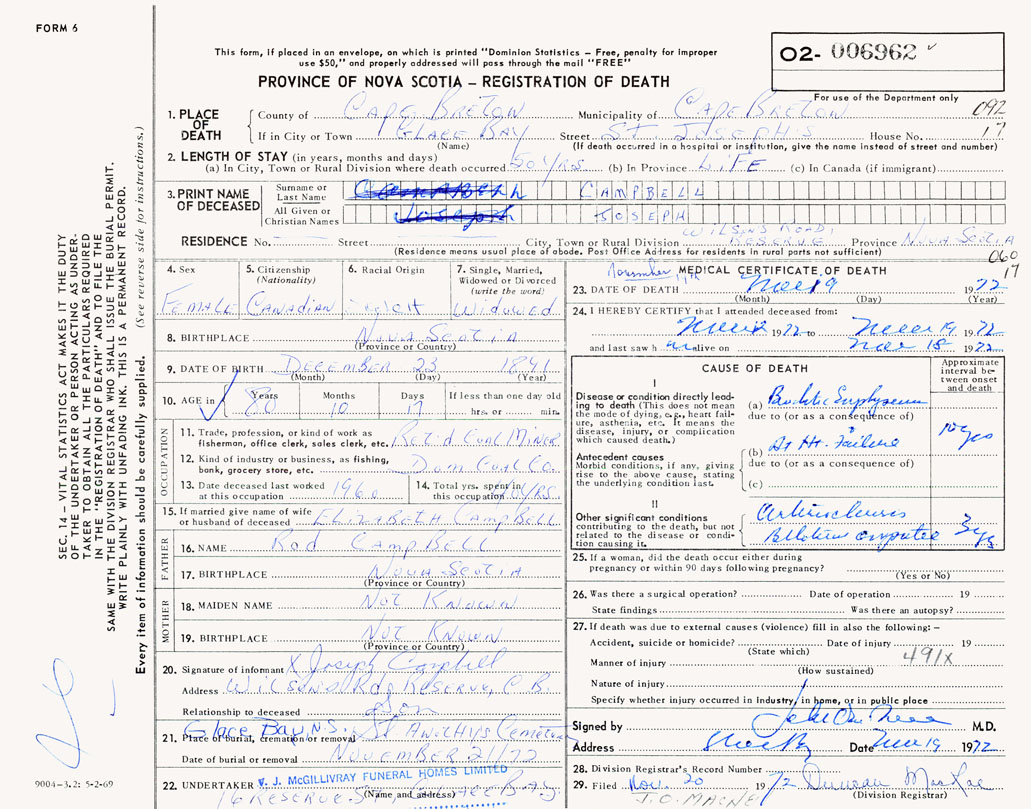 FORM 6
This form, if placed in an envelope, on which is printed "Dominion Statistics – Free, penalty for improper
use $50," and properly addressed will pass through the mail "FREE"
PROVINCE OF NOVA SCOTIA – REGISTRATION OF DEATH
O2- 006962
For use of the Department only
092
17
1. PLACE OF DEATH
County of CAPE BRETON Municipality of CAPE BRETON
If in City or Town GLACE BAY Street ST. JOSEPH'S House No.
(Name) (If death occurred in a hospital or institution, give the name instead of street and number)
2. LENGTH OF STAY (in years, months and days)
(a) In City, Town or Rural Division where death occurred 50 YRS. (b) In Province LIFE (c) In Canada (if immigrant)
3. PRINT NAME OF DECEASED
Surname or Last Name Campbell CAMPBELL
All Given or Christian Names Joseph JOSEPH
WILSONS ROAD,
RESIDENCE No. Street City, Town or Rural Division RESERVE Province NOVA SCOTIA
(Residence means usual place of abode. Post Office Address for residents in rural parts not sufficient)
060
17
4. Sex
FEMALE
5. Citizenship
(Nationality)
CANADIAN
6. Racial Origin
7. Single, Married,
Widowed or Divorced
(write the word)
Widowed
8. BIRTHPLACE NOVA SCOTIA
(Province or Country)
9. DATE OF BIRTH DECEMBER 23 1891
(Month) (Day) (Year)
10. AGE in Years 80 Months 10 Days 17 If less than one day old
hrs. or min.
OCCUPATION
11. Trade, profession, or kind of work as
fisherman, office clerk, sales clerk, etc. Ret'd COAL MINER
12. Kind of industry or business, as fishing,
bank, grocery store, etc. Dom Coal Co.
13. Date deceased last worked
at this occupation 1960
14. Total yrs. spent in
this occupation YRS.
15. If married give name of wife
or husband of deceased ELIZABETH CAMPBELL
FATHER
16. NAME Rod CAMPBELL
17. BIRTHPLACE NOVA SCOTIA
(Province or Country)
MOTHER
18. MAIDEN NAME NOT KNOWN
19. BIRTHPLACE NOT KNOWN
(Province or Country)
20. Signature of informant X Joseph Campbell
Address WILSONS Rd RESERVE, C.B.
Relationship to deceased Son
Glace Bay, N.S.
21. Place of burial, cremation or removal ST ANTHONYS CEMETERY
Date of burial or removal NOVEMBER 21/72
22. UNDERTAKER V. J. McGILLIVRAY FUNERAL HOMES LIMITED
(Name and address)
16 RESERVE ST. GLACE BAY
MEDICAL CERTIFICATE OF DEATH
November
23. DATE OF DEATH Nov 19 1972
(Month) (Day) (Year)
24. I HEREBY CERTIFY that I attended deceased from:
1972 to Nov 19 1972
and last saw h alive on Nov 18 1972
CAUSE OF DEATH
Approximate interval between onset and death
I
Disease or condition directly leading to death (This does not mean the mode of dying, e.g., heart failure, asthenia, etc. It means the disease, injury, or complication which caused death.)
(a) Emphysema
due to (or as a consequence of)
10 yrs
Antecedent causes
Morbid conditions, if any, giving rise to the above cause, stating the underlying condition last.
(b) Ht. Failure
due to (or as a consequence of)
(c)
II
Other significant conditions
contributing to the death, but not related to the disease or condition causing it.
3 yrs
25. If a woman, did the death occur either during
pregnancy or within 90 days following pregnancy?
(Yes or No)
26. Was there a surgical operation? Date of operation 19
State findings Was there an autopsy?
27. If death was due to external causes (violence) fill in also the following: –
Accident, suicide or homicide? Date of injury 19
(State which)
491X
Manner of injury
(How sustained)
Nature of injury
Specify whether injury occurred in industry, in home, or in public place
Signed by M.D.
Address Date Nov 19 1972
28. Division Registrar's Record Number
29. Filed Nov. 20 1972 Duncan MacRae
(Division Registrar)
SEC. 14 – VITAL STATISTICS ACT MAKES IT THE DUTY
OF THE UNDERTAKER OR PERSON ACTING AS UNDER-
TAKER TO OBTAIN ALL THE PARTICULARS REQUIRED
IN THE "REGISTRATION OF DEATH" AND FILE THE
SAME WITH THE DIVISION REGISTRAR WHO SHALL ISSUE THE BURIAL PERMIT.
WRITE PLAINLY WITH UNFADING INK. THIS IS A PERMANENT RECORD.
Every item of information should be carefully supplied. (See reverse side for instructions.)
9004-3.2: 5-2-69